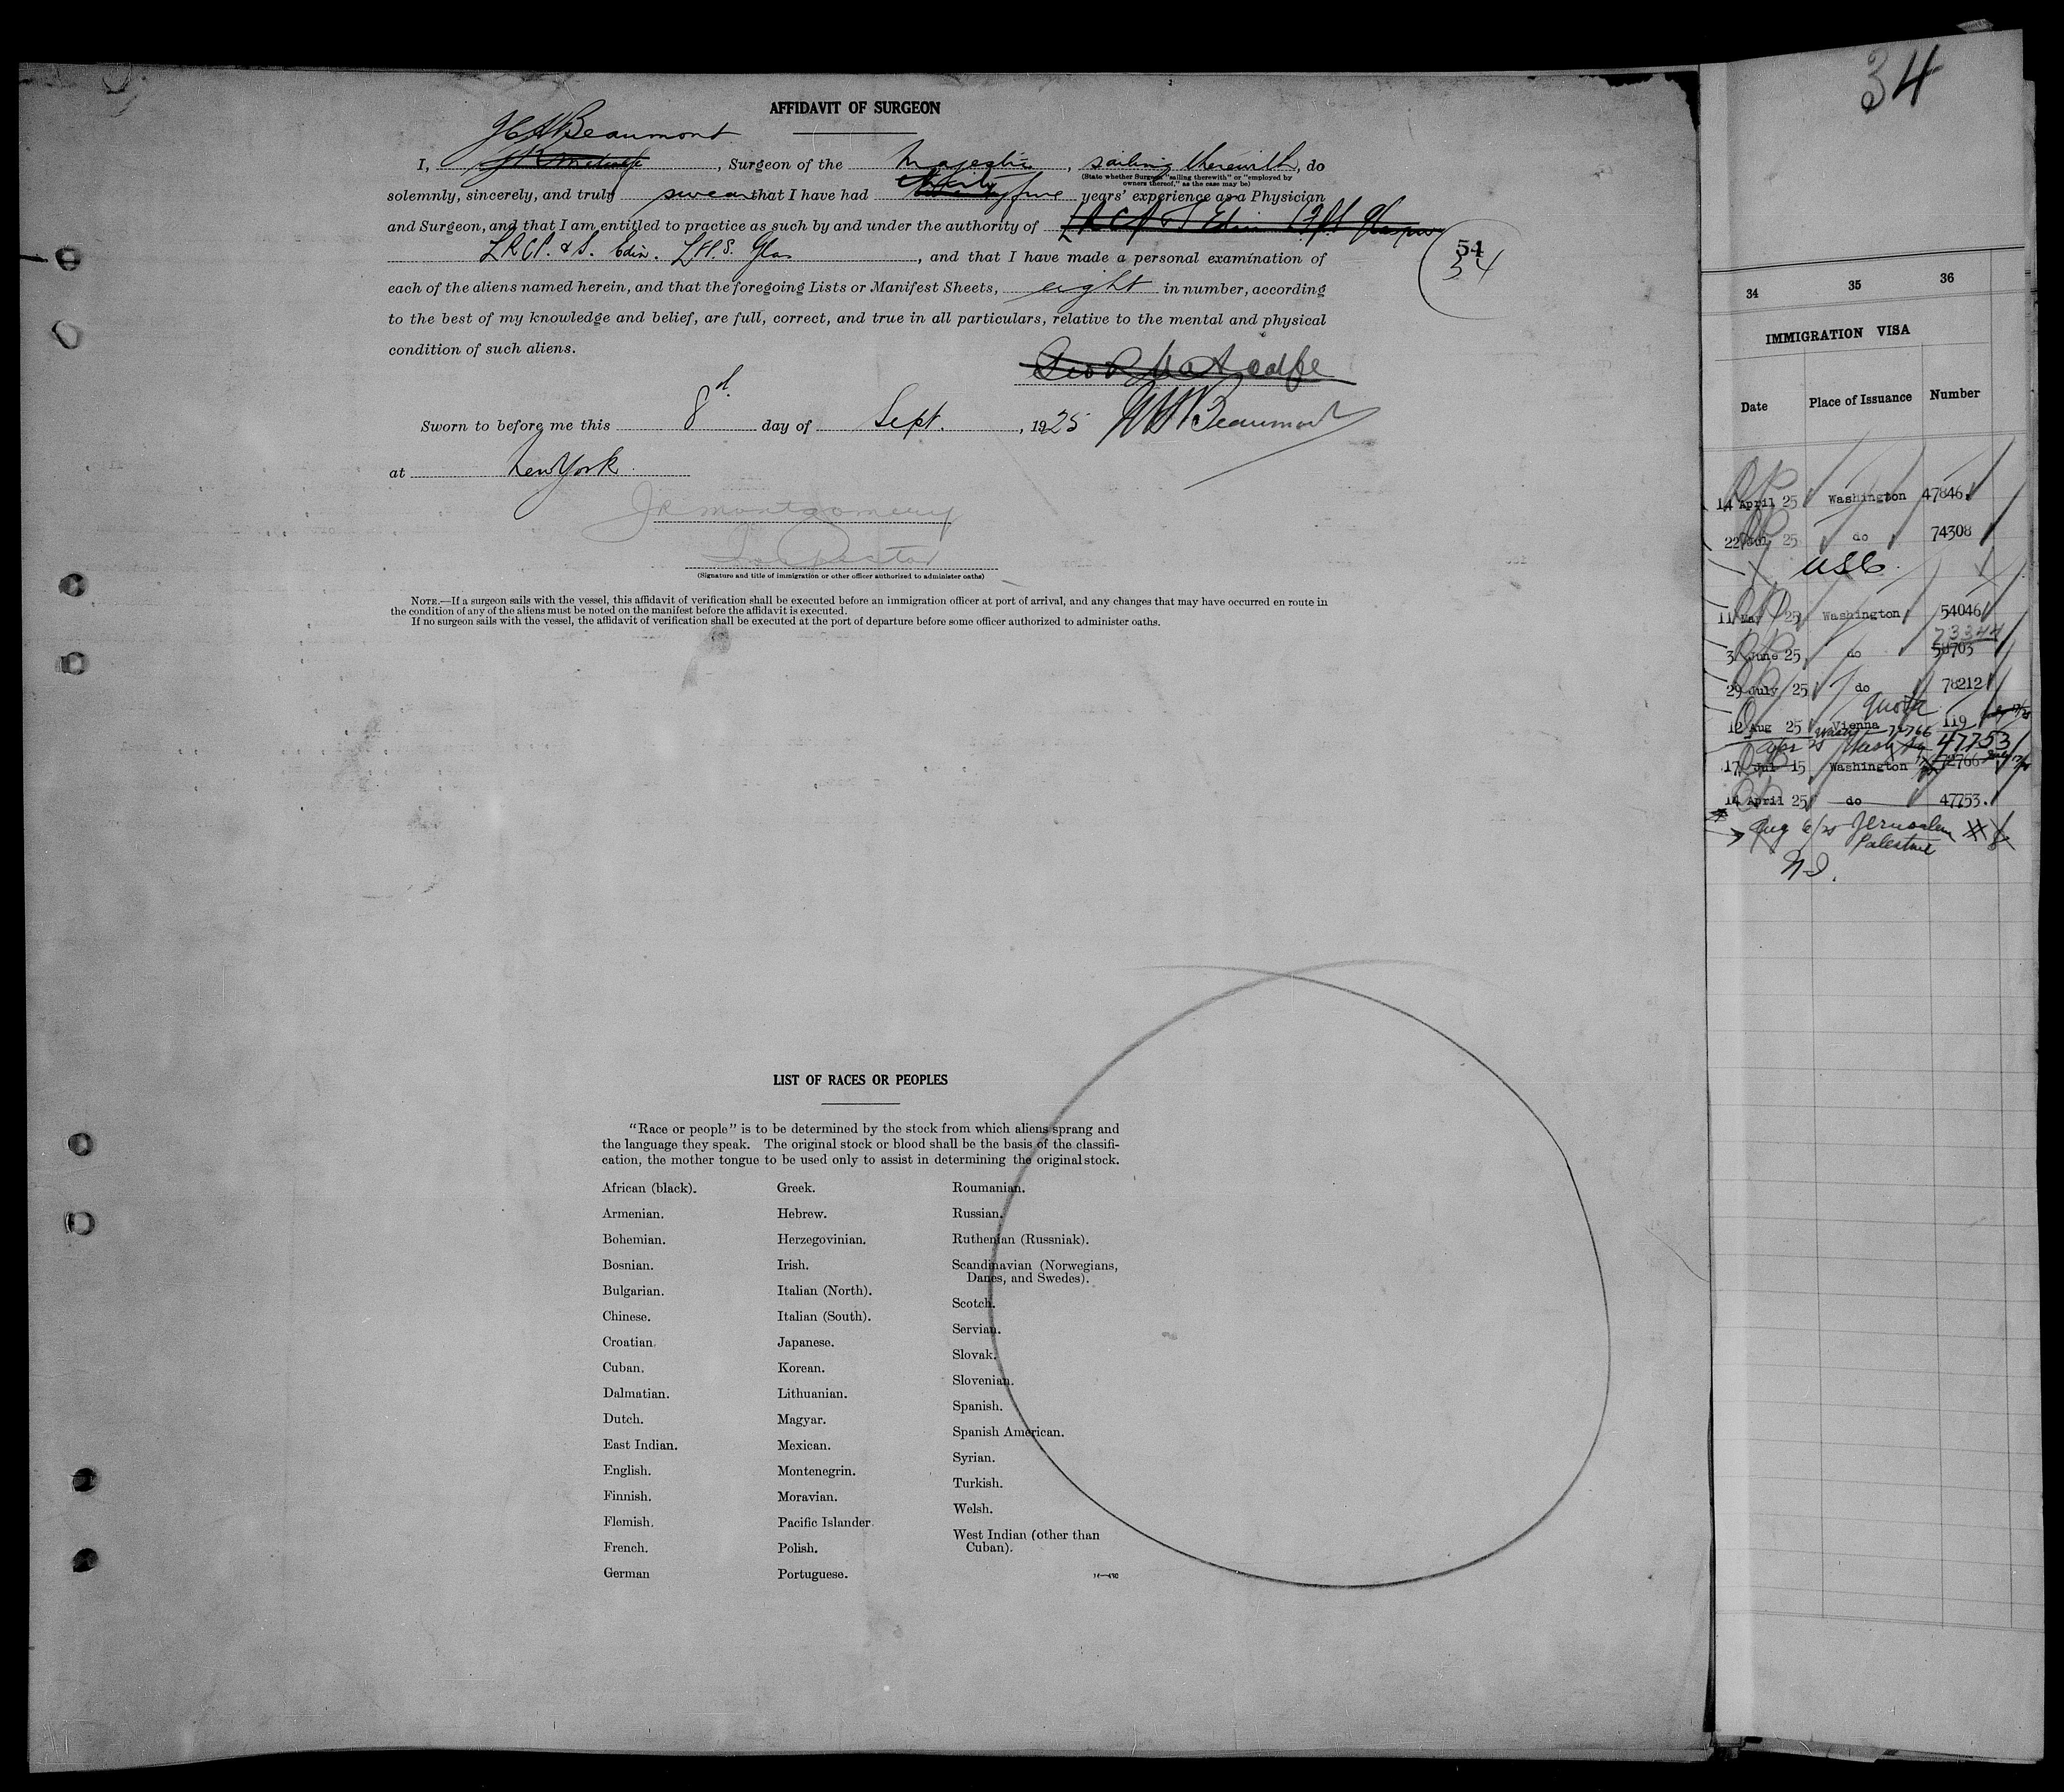 AFFIDAVIT OF SURGEON
Beaumont
I, , Surgeon of the Majestic, sailing therewith, do
(State whether Surgeon "sailing therewith" or "employed by
owners thereof," as the case may be)
solemnly, sincerely, and truly swear that I have had thirty five years' experience as a Physician
and Surgeon, and that I am entitled to practice as such by and under the authority of
LRCP. & S. Edin. LFPS. Glas , and that I have made a personal examination of
each of the aliens named herein, and that the foregoing Lists or Manifest Sheets, eight in number, according
to the best of my knowledge and belief, are full, correct, and true in all particulars, relative to the mental and physical
condition of such aliens.
54
54
Geo R Metcalfe
Beaumont
Sworn to before me this 8 day of Sept. , 1925
at New York.
JR Montgomery
Inspector
(Signature and title of immigration or other officer authorized to administer oaths)
NOTE.—If a surgeon sails with the vessel, this affidavit of verification shall be executed before an immigration officer at port of arrival, and any changes that may have occurred en route in
the condition of any of the aliens must be noted on the manifest before the affidavit is executed.
If no surgeon sails with the vessel, the affidavit of verification shall be executed at the port of departure before some officer authorized to administer oaths.
LIST OF RACES OR PEOPLES
"Race or people" is to be determined by the stock from which aliens sprang and
the language they speak. The original stock or blood shall be the basis of the classifi-
cation, the mother tongue to be used only to assist in determining the original stock.
African (black).
Armenian.
Bohemian.
Bosnian.
Bulgarian.
Chinese.
Croatian.
Cuban.
Dalmatian.
Dutch.
East Indian.
English.
Finnish.
Flemish.
French.
German
Greek.
Hebrew.
Herzegovinian.
Irish.
Italian (North).
Italian (South).
Japanese.
Korean.
Lithuanian.
Magyar.
Mexican.
Montenegrin.
Moravian.
Pacific Islander.
Polish.
Portuguese.
Roumanian.
Russian.
Ruthenian (Russniak).
Scandinavian (Norwegians,
Danes, and Swedes).
Scotch.
Servian.
Slovak.
Slovenian.
Spanish.
Spanish American.
Syrian.
Turkish.
Welsh.
West Indian (other than
Cuban).
34
34 35 36
IMMIGRATION VISA
Date Place of Issuance Number
14 April 25 Washington 47846.
22 Jul 25 do 74308
USC.
11 May 25 Washington 54046
73344
3 June 25 do 58703
29 July 25 do 78212
quota
12 Aug 25 Vienna 119
72766
47753
17 Jul 15 Washington 72766
14 April 25 do 47753.
Aug 6/25 Jerusalem # 8
Palestine